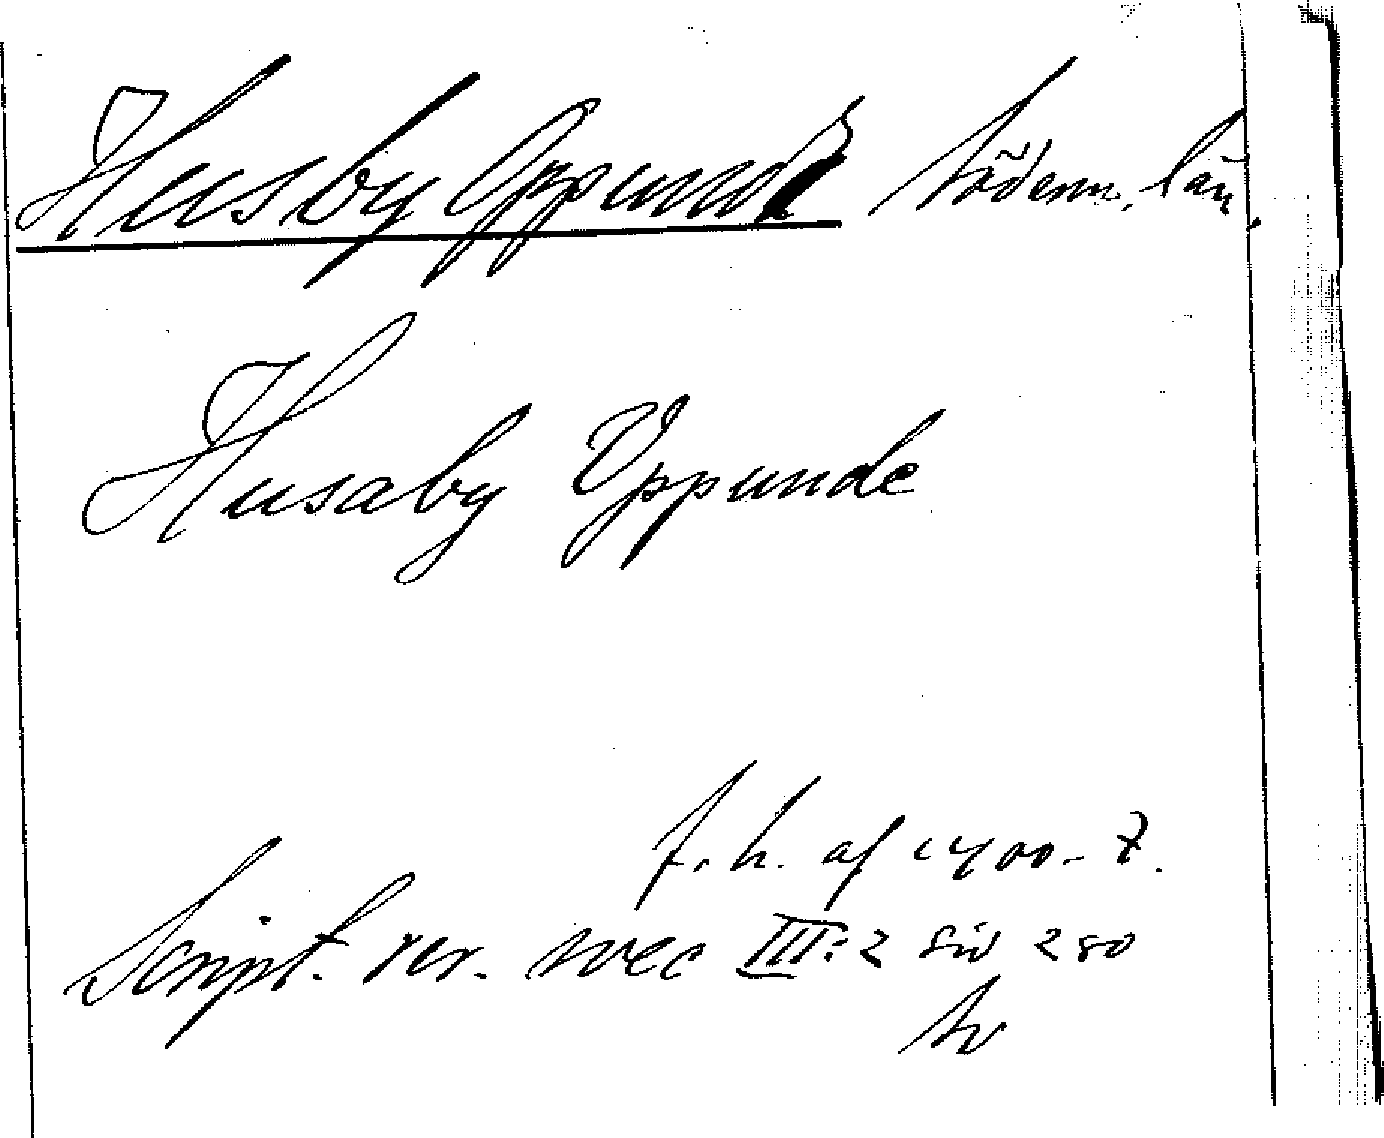 Husby Oppunda Söderm. län.
Husaby Uppunde
f. h. af 1400-t.
Script. rer. svec III:2 sid 280